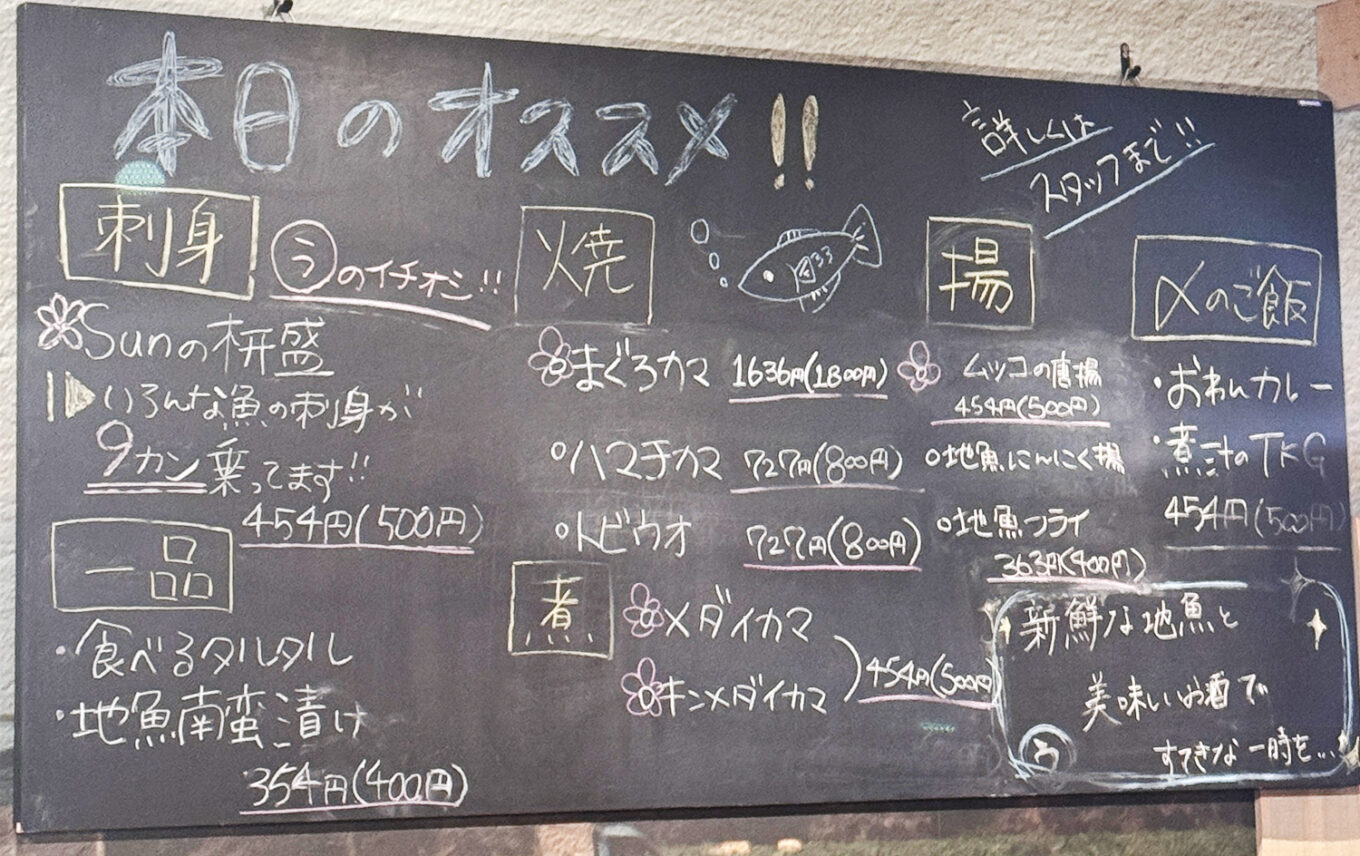 本日のオススメ!!
詳しくは
スタッフまで!!
刺身
うのイチオシ!!
Sunの枡盛
いろんな魚の刺身が
9カン乗ってます!!
454円(500円)
一品
・食べるタルタル
・地魚南蛮漬け
354円(400円)
焼
まぐろカマ 1636円(1800円)
○ハマチカマ 727円(800円)
○トビウオ 727円(800円)
煮
メダイカマ
キンメダイカマ
454円(500円)
揚
ムツコの唐揚
454円(500円)
○地魚にんにく揚
○地魚フライ
363円(400円)
〆のご飯
・おわんカレー
・煮汁のTKG
454円(500円)
新鮮な地魚と
美味しいお酒で
すてきな一時を...
う